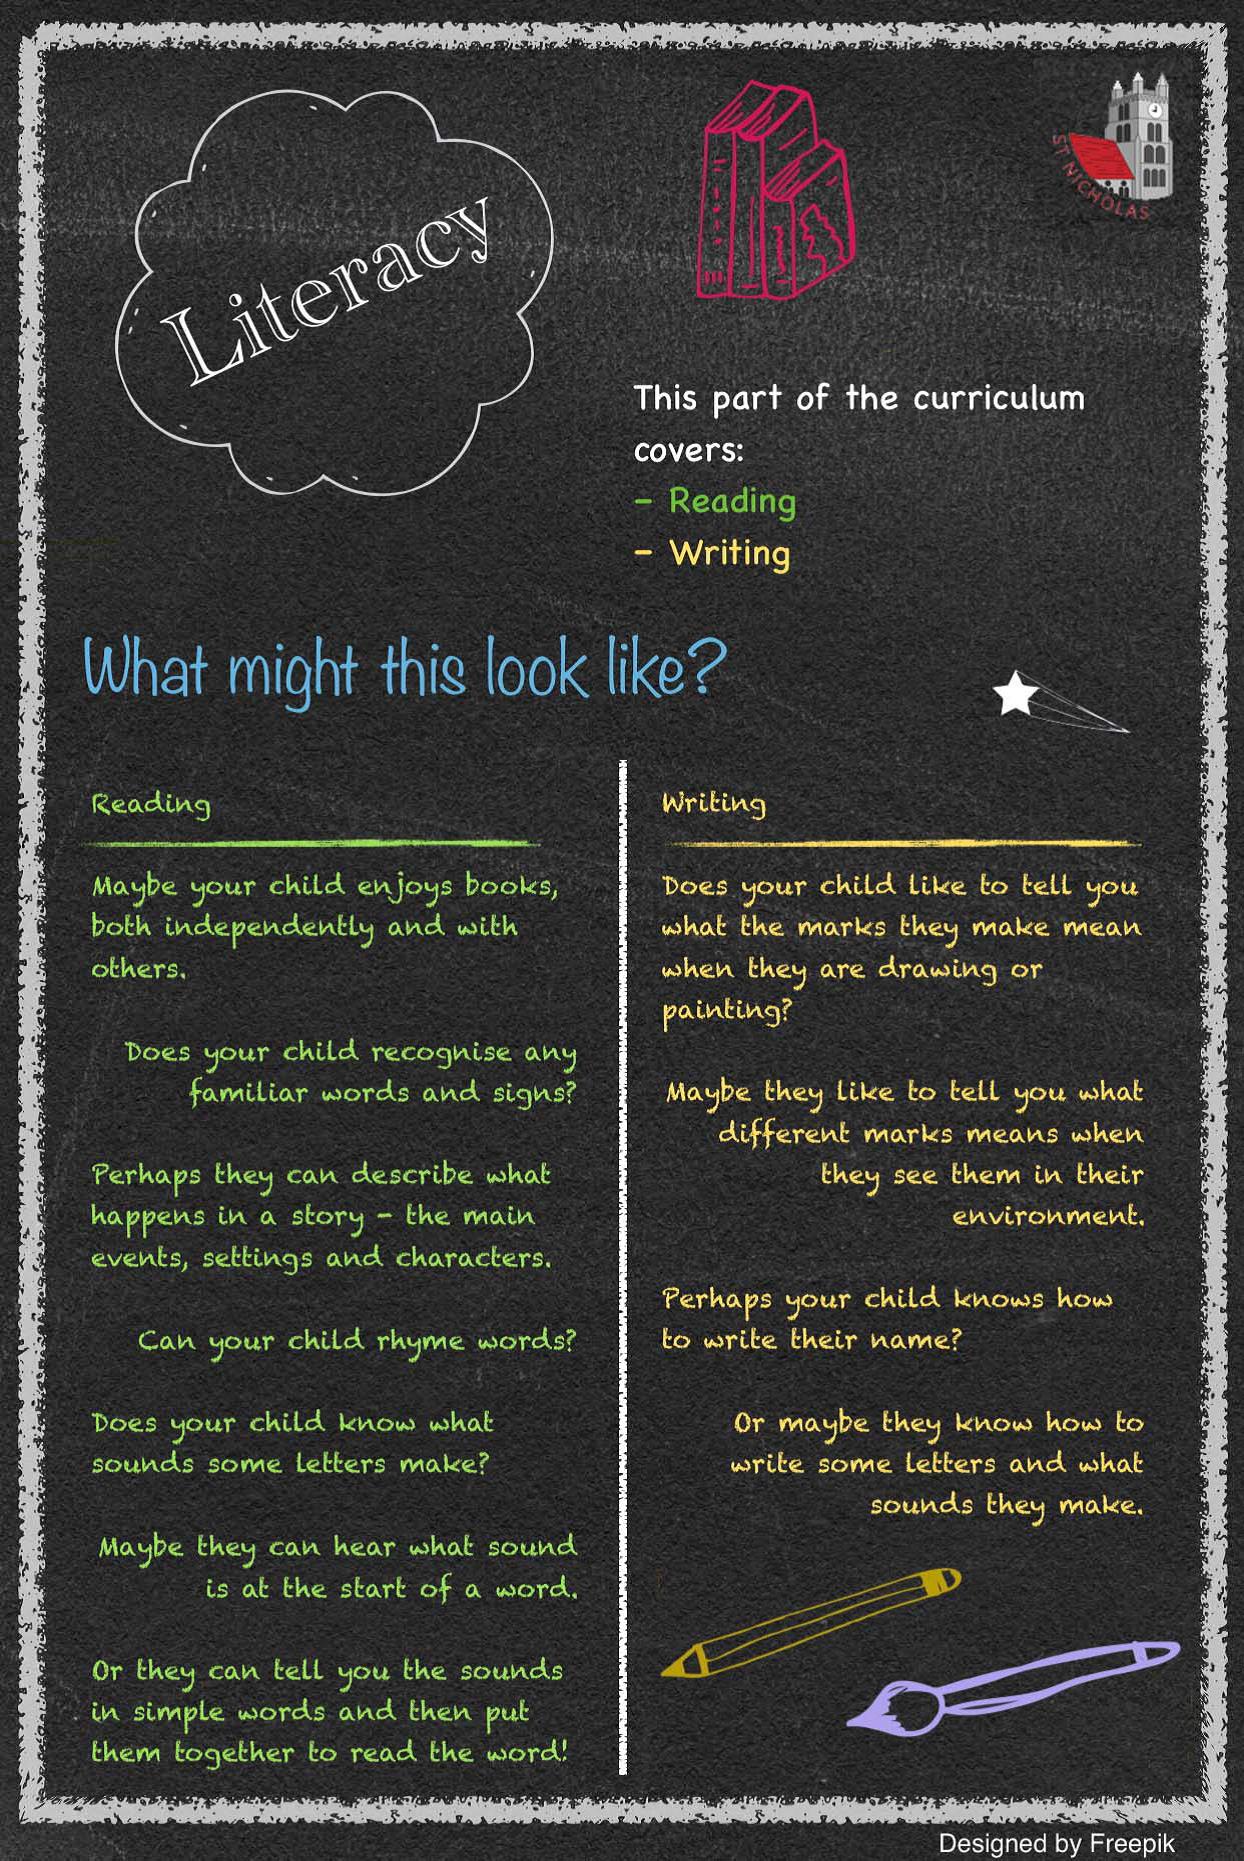 Literacy
ST NICHOLAS
This part of the curriculum
covers:
- Reading
- Writing
What might this look like?
Reading
Maybe your child enjoys books,
both independently and with
others.
Does your child recognise any
familiar words and signs?
Perhaps they can describe what
happens in a story - the main
events, settings and characters.
Can your child rhyme words?
Does your child know what
sounds some letters make?
Maybe they can hear what sound
is at the start of a word.
Or they can tell you the sounds
in simple words and then put
them together to read the word!
Writing
Does your child like to tell you
what the marks they make mean
when they are drawing or
painting?
Maybe they like to tell you what
different marks means when
they see them in their
environment.
Perhaps your child knows how
to write their name?
Or maybe they know how to
write some letters and what
sounds they make.
Designed by Freepik